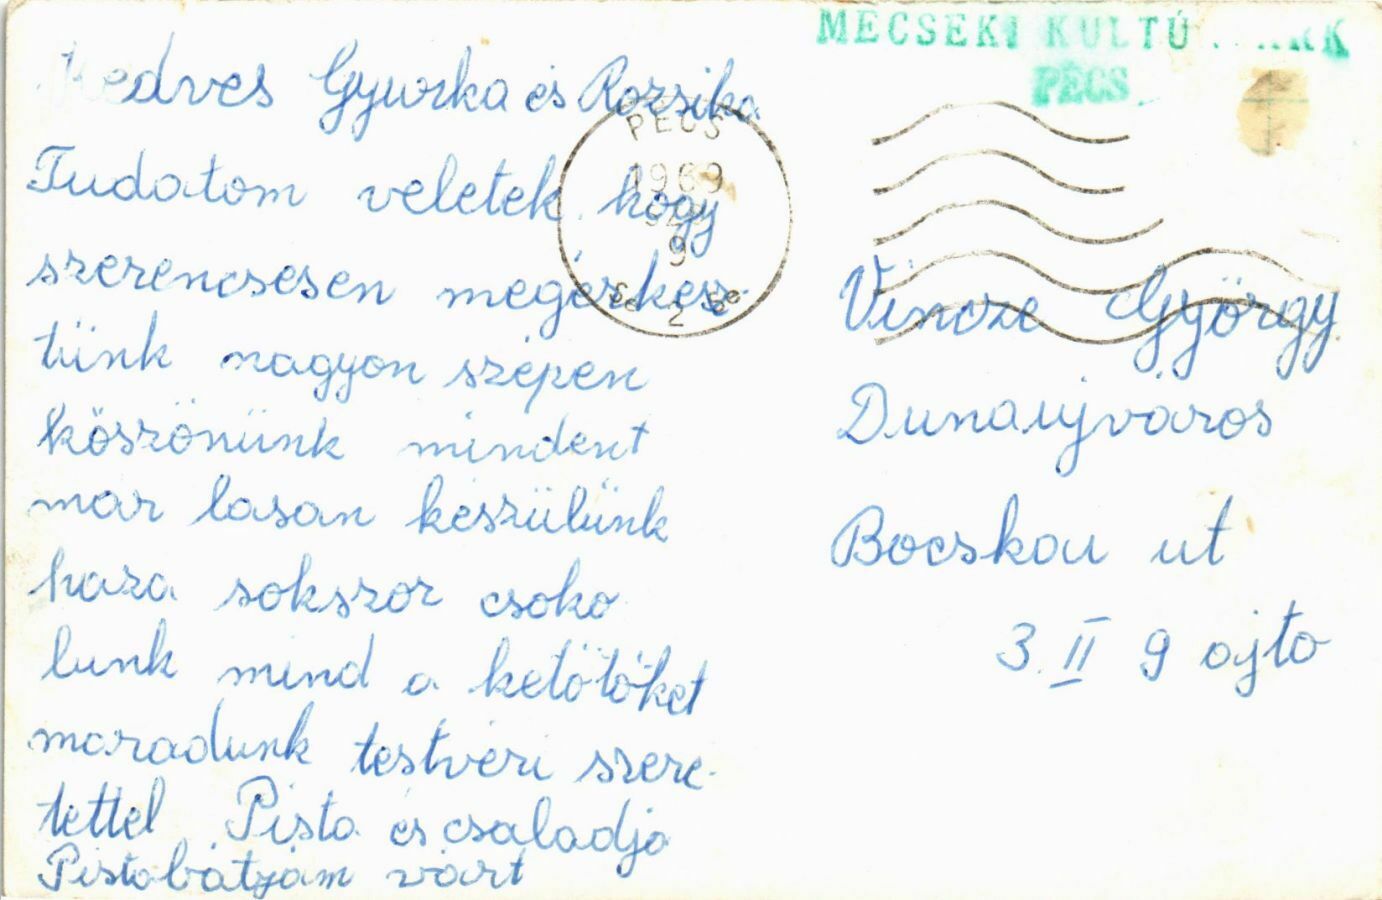 Kedves Gyurka és Rozsika
Tudatom veletek hogy
szerencsesen megérkez-
tünk nagyon szépen
köszönünk mindent
mar lasan készülünk
haza sokszor csoko
lunk mind a ketötöket
maradunk testveri szere-
tettel Pista és csaladja
Pistabátyám várt
MECSEKI KULTÚ
PÉCS
PÉCS
1969
9
2
Vincze György
Dunaujváros
Bocskai ut
3. II 9 ajto